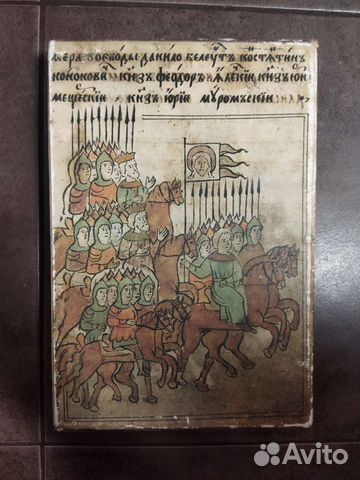 воеводы данило белеутъ костятинъ
кононовъ кнзъ феодоръ елецкии кнзъ юри
мещескии кнзъ юрие муромъскии
Avito